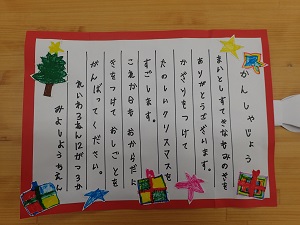 かんしゃじょう
まいとしすてきなもみのきを
ありがとうございます。
かざりをつけて
たのしいクリスマスを
すごします。
これからも おからだに
きをつけて おしごとを
がんばってください。
れいわ3ねん12がつ3か
みよしようちえん